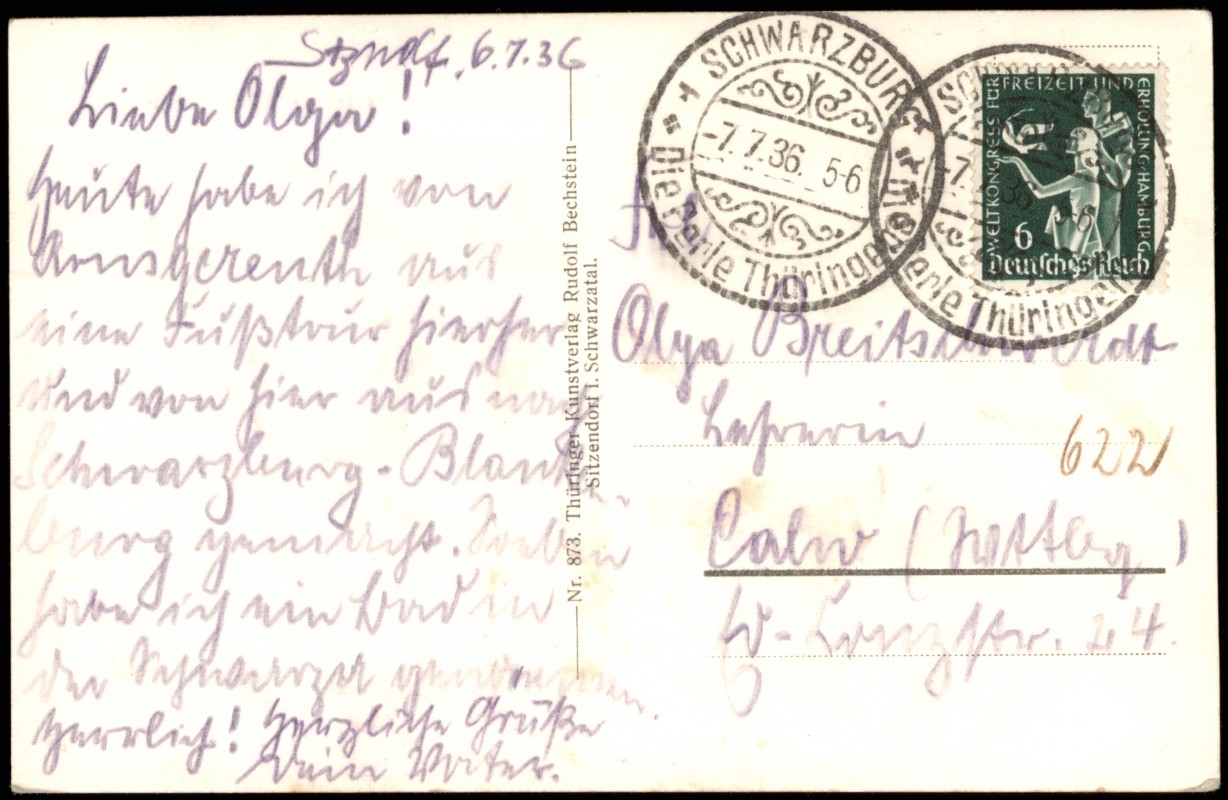 Stzndf, 6.7.36
Liebe Olga!
Heute habe ich von
aus
eine Fußtour hierher
und von hier aus nach
Schwarzburg-Blanken-
burg gemacht. Soeben
habe ich ein Bad in
der Schwarza genommen.
Herrlich! Herzliche Grüße
Dein Vater.
Nr. 873. Thüringer Kunstverlag Rudolf Bechstein
Sitzendorf i. Schwarzatal.
SCHWARZBURG
7.7.36. 5-6
Die Perle Thüringens
SCHWARZBURG
7.7.36. 5-6
Die Perle Thüringens
WELTKONGRESS FÜR FREIZEIT UND ERHOLUNG/HAMBURG
6
Deutsches Reich
Olga Breitschwerdt
Lehrerin
622
Calw (Wttbg)
24.